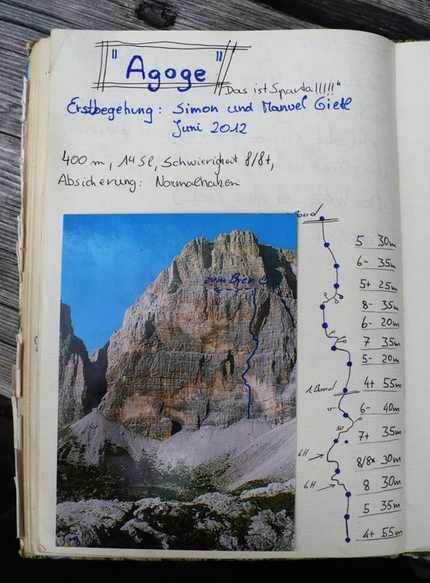 "Agoge"
"Das ist Sparta!!!!!"
Erstbegehung: Simon und Manuel Gietl
Juni 2012
400 m, 14 SL, Schwierigkeit 8/8+,
Absicherung: Normalhaken
Band
5 30m
6- 35m
5+ 25m
8- 35m
6- 20m
7 35m
5- 20m
1. Band
4+ 55m
6- 40m
7+ 35m
6H
8/8+ 30m
6H
8 30m
5 35m
4+ 55m